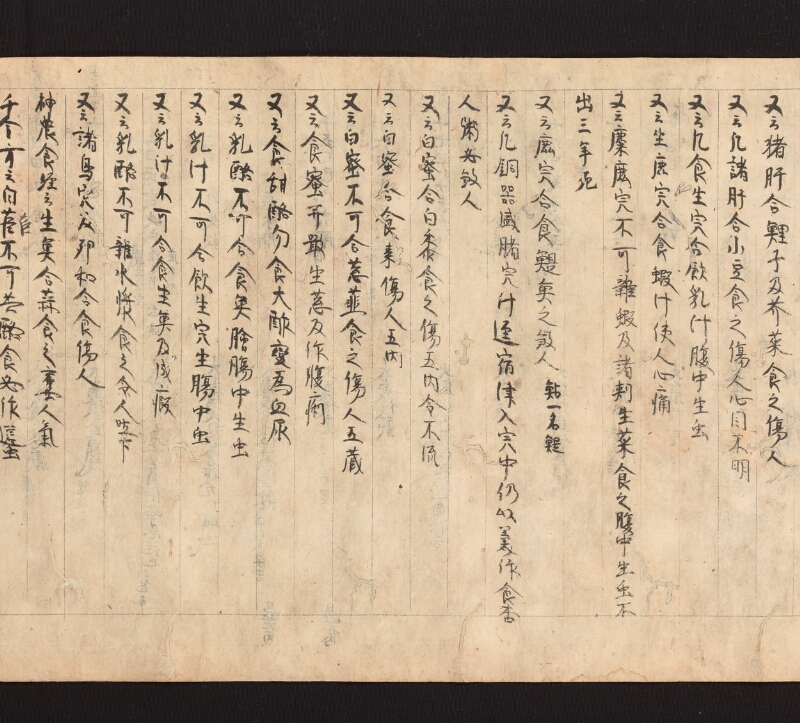 又云猪肝合鯉子及芥菜食之傷人
又云凡諸肝合小豆食之傷人心目不明
又云凡食生宍合飲乳汁腹中生虫
又云生鹿宍合食蝦汁使人心痛
又云麋鹿宍不可雜蝦及諸刾生菜食之腹中生虫不
出三年死
又云鹿宍合食鮠魚之敓人 鮎一名鯷
又云凡銅器盛腊宍汁逕宿津入宍中仍以羹作食
人粥必敓人
又云白蜜合白黍食之傷五内令不流
又云白蜜合食棗傷人五内
又云白蜜不可合葱韮食之傷人五蔵
又云食蜜并噉生葱及作腹痢
又云食甜酪勿食大酢變為血尿
又云乳酪不可合食魚膾腸中生虫
又云乳汁不可合飲生宍生腸中虫
又云乳汁不可合食生魚及成瘕
又云乳酪不可雜水漿食之令人吐下
又云諸鳥宍及卵和合食傷人
神農食経云生魚合蒜食之奪人氣
千金方云白苣不可共酪食必作䘌虫